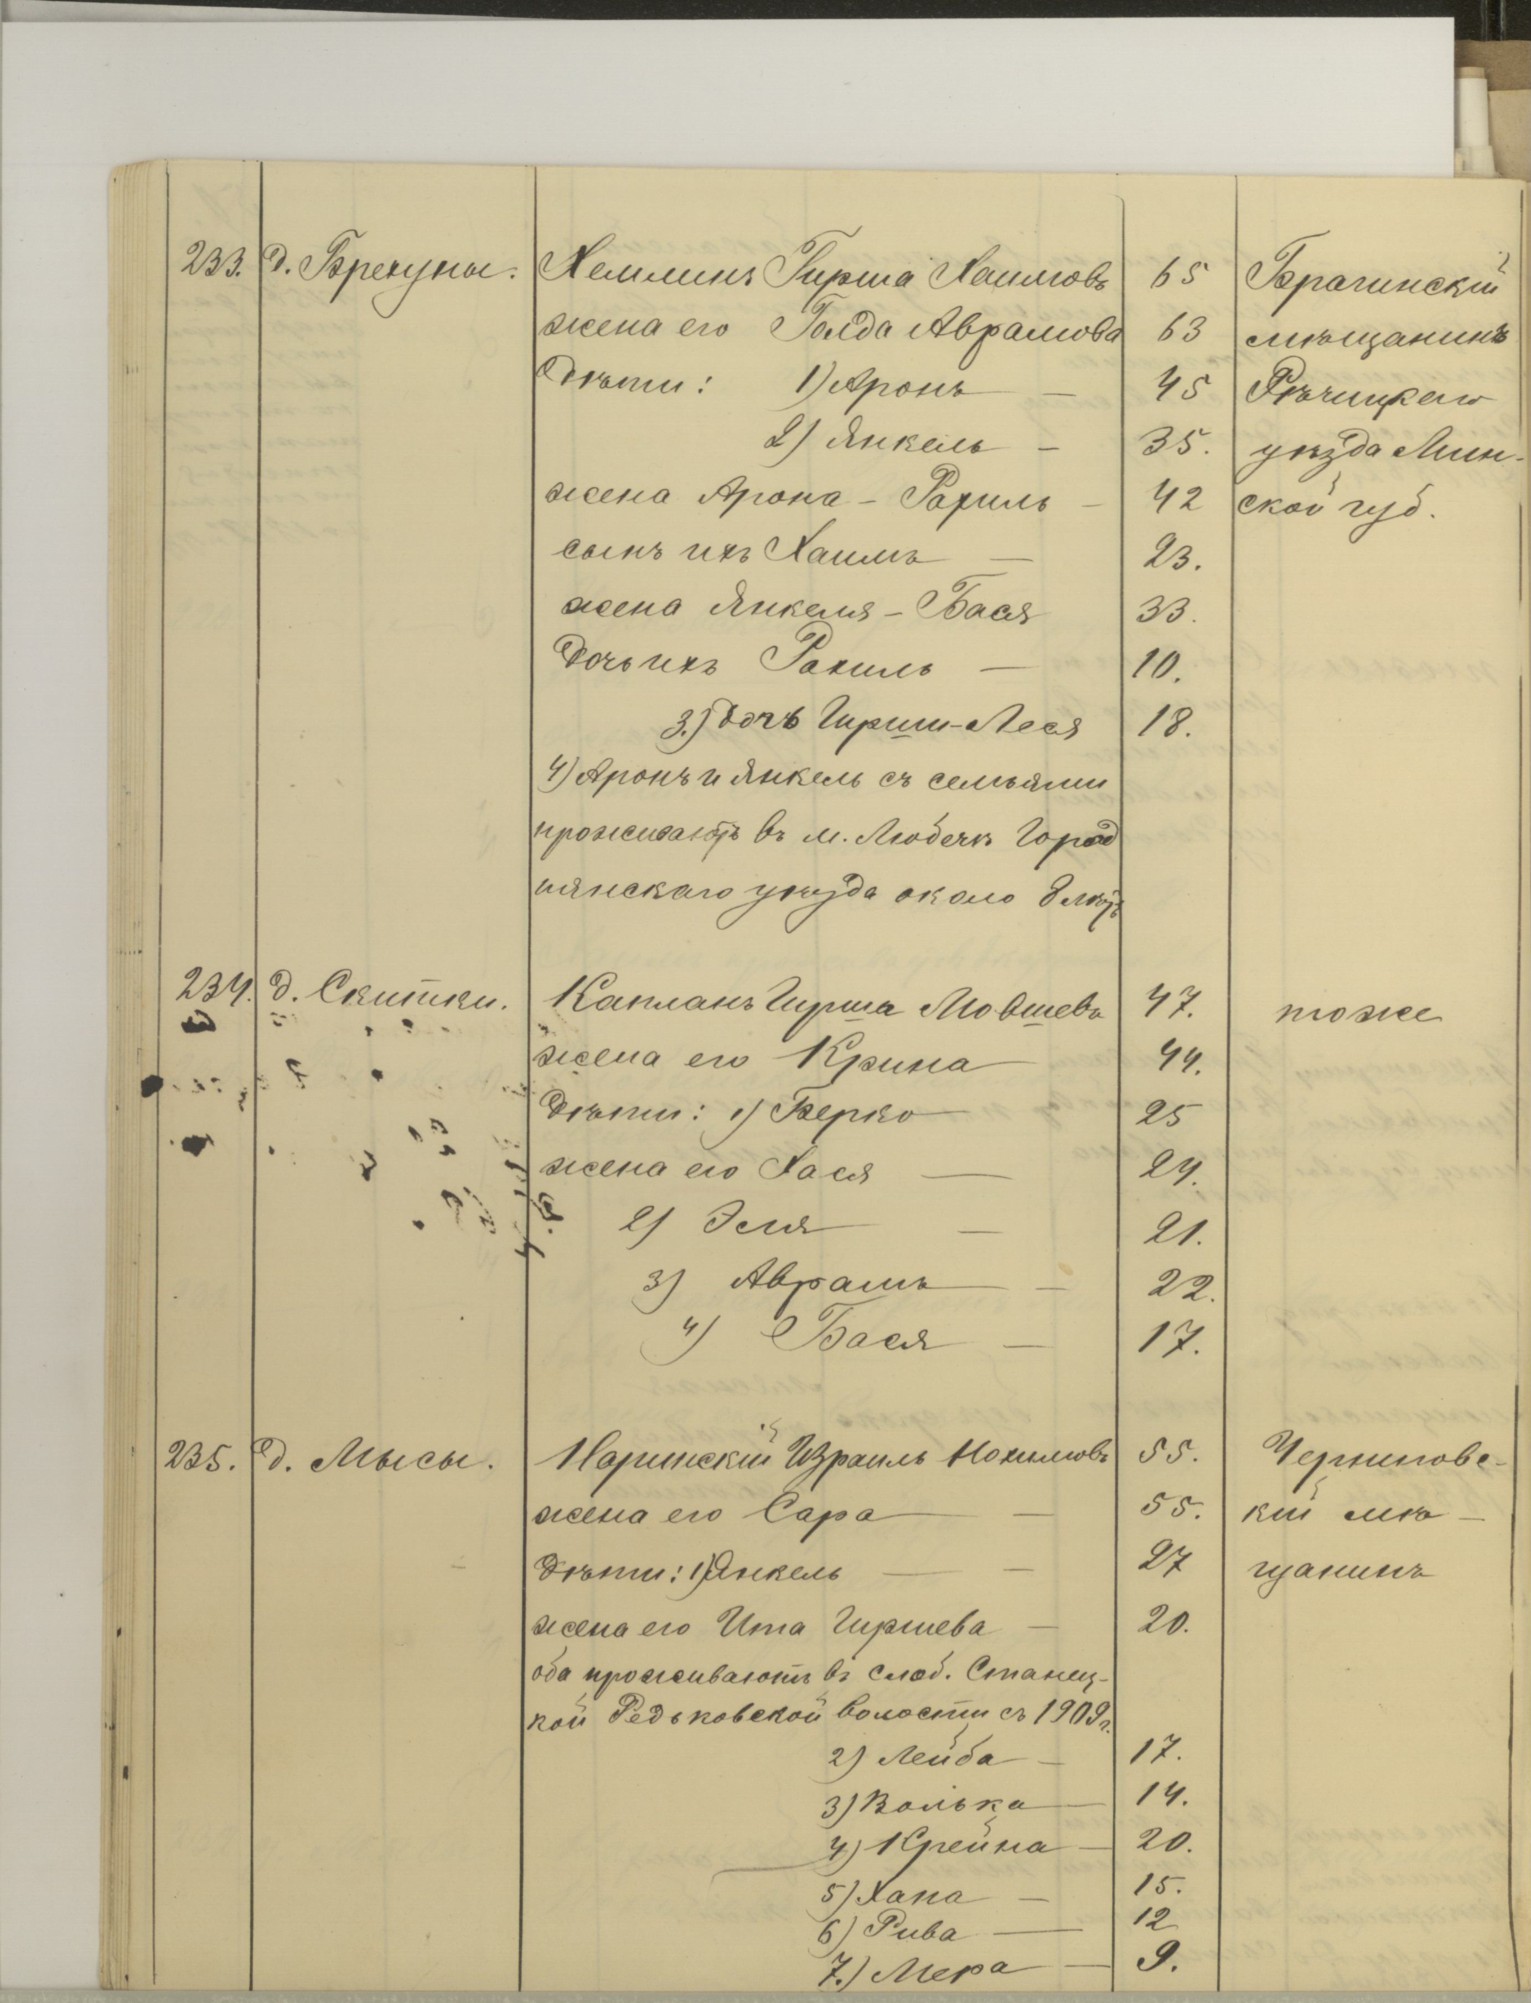 233. д. Брехуны. Хемлинъ Гирша Хаимовъ 65 Брагинскій
жена его Голда Аврамова 63 мѣщанинъ
Дѣти: 1) Аронъ — 45 Рѣчицкаго
2) Янкель — 35. уѣзда Мин-
жена Арона – Рахиль – 42 ской губ.
сынъ ихъ Хаимъ — 23.
жена Янкеля – Бася 33.
Дочь ихъ Рахиль — 10.
3.) дочь Гирши-Леся 18.
4) Аронъ и Янкель съ семьями
проживаютъ въ м. Любечѣ Город
нянскаго уѣзда около 8 лѣтъ
234. д. Скитки. Капланъ Гирша Мовшевъ 47. тоже
жена его Крина 44.
Дѣти: 1) Берко 25
жена его Хася — 24.
2) Эля — 21.
3) Аврамъ — 22.
4) Бася — 17.
235. д. Мысы. Наринскій Израиль Нохимовъ 55. Черниговс-
жена его Сара — 55. кій мѣ –
Дѣти: 1) Янкель — — 27 щанинъ
жена его Ита Гиршева — 20.
оба проживаютъ въ слоб. Станец-
кой Редьковской волости съ 1909 г.
2) Лейба — 17.
3) Волька — 14.
4) Крейна — 20.
5) Хана — 15.
6) Рива — 12
7.) Мера — 9.